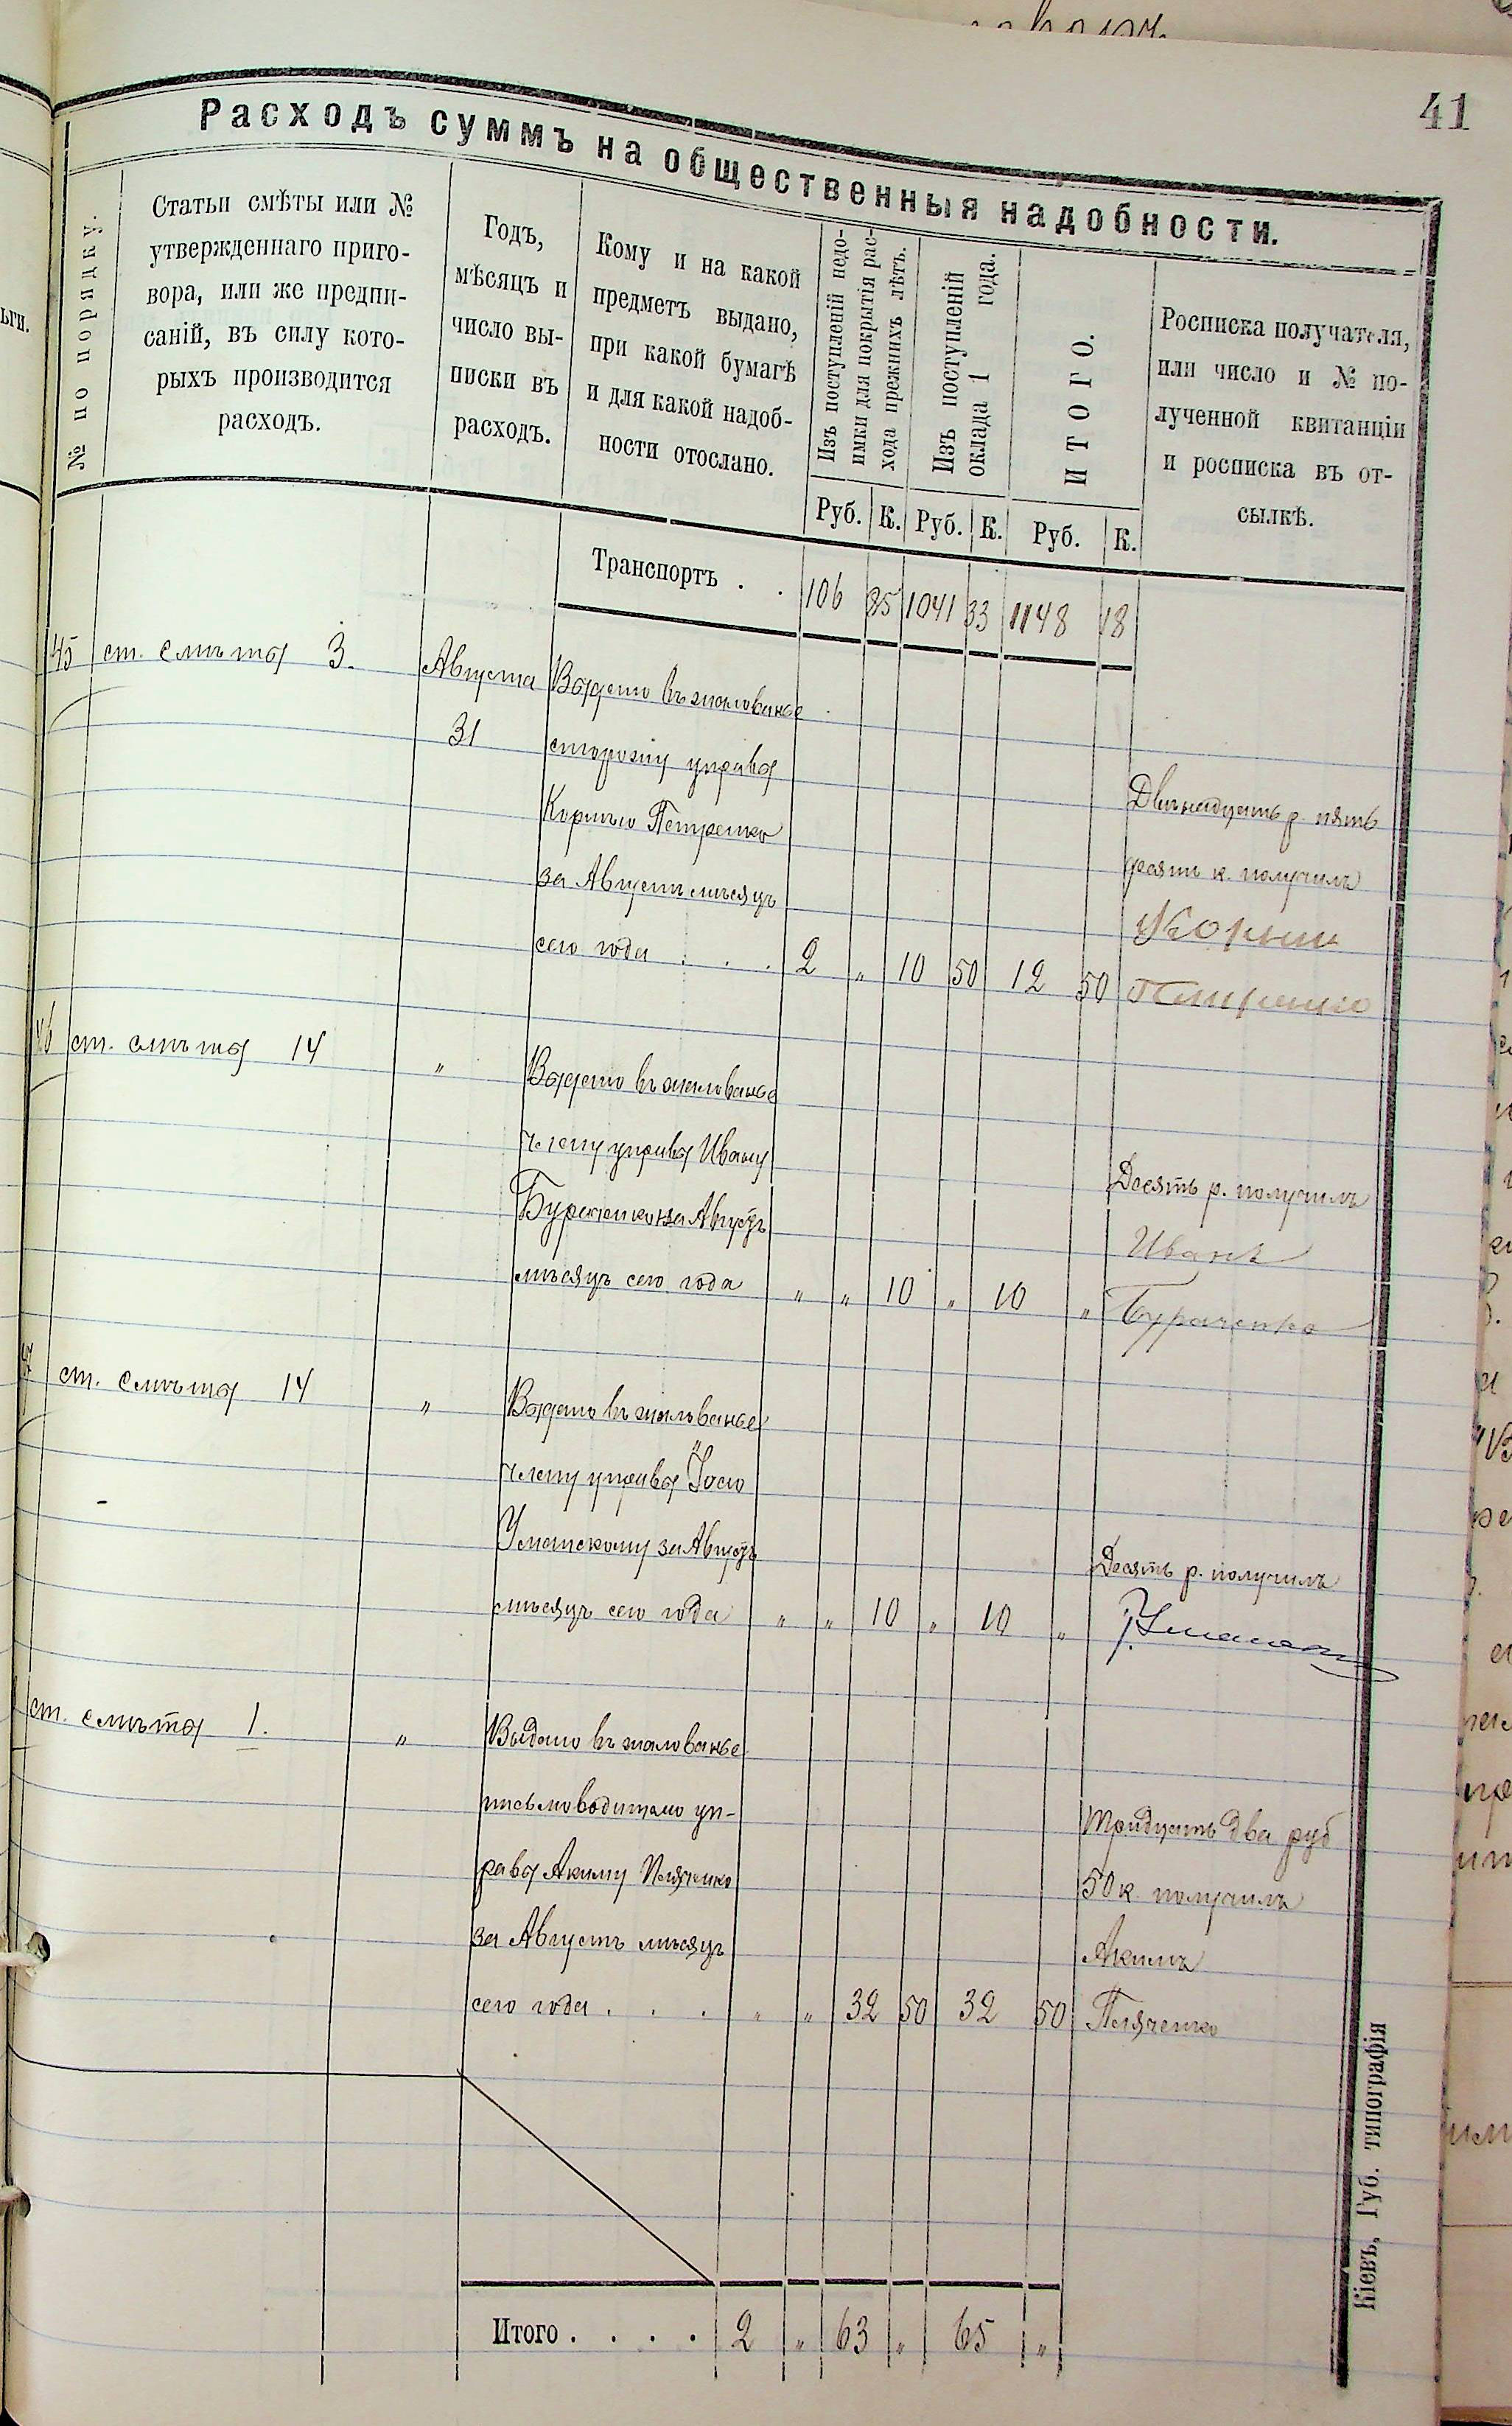 41
Расходъ суммъ на общественныя надобности.
№ по порядку.
Статьи смѣты или №
утвержденнаго приго-
вора, или же предпи-
саній, въ силу кото-
рыхъ производится
расходъ.
Годъ,
мѣсяцъ и
число вы-
писки въ
расходъ.
Кому и на какой
предметъ выдано,
при какой бумагѣ
и для какой надоб-
ности отослано.
Изъ поступленій недо-
имки для покрытія рас-
хода прежнихъ лѣтъ.
Изъ поступленій
оклада 1 года.
ИТОГО.
Росписка получателя,
или число и № по-
лученной квитанціи
и росписка въ от-
сылкѣ.
Руб. К. Руб. К. Руб. К.
Транспортъ . . 106 85 1041 33 1148 18
45 ст. смѣты 3. Августа Выдано въ жалованье
31 сторожу управы
Корнѣю Петренко Двѣнадцать р. пять
за Августъ мѣсяцъ десятъ к. получилъ
сего года . . . 2 " 10 50 12 50
46 ст. смѣты 14 " Выдано въ жалованье
члену управы Ивану Десять р. получилъ
за Августъ Иванъ
мѣсяцъ сего года " " 10 " 10 " Бураченко
ст. смѣты 14 " Выдано въ жалованье
члену управы
Уманскому за Августъ Десять р. получилъ
мѣсяцъ сего года " " 10 " 10 "
ст. смѣты 1. " Выдано въ жалованье
письмоводителю уп- Тридцать два руб
равы Акиму 50 к. получилъ
за Августъ мѣсяцъ Акимъ
сего года . . . " " 32 50 32 50
Итого . . . . 2 " 63 " 65 "
Кіевъ, Губ. типографія